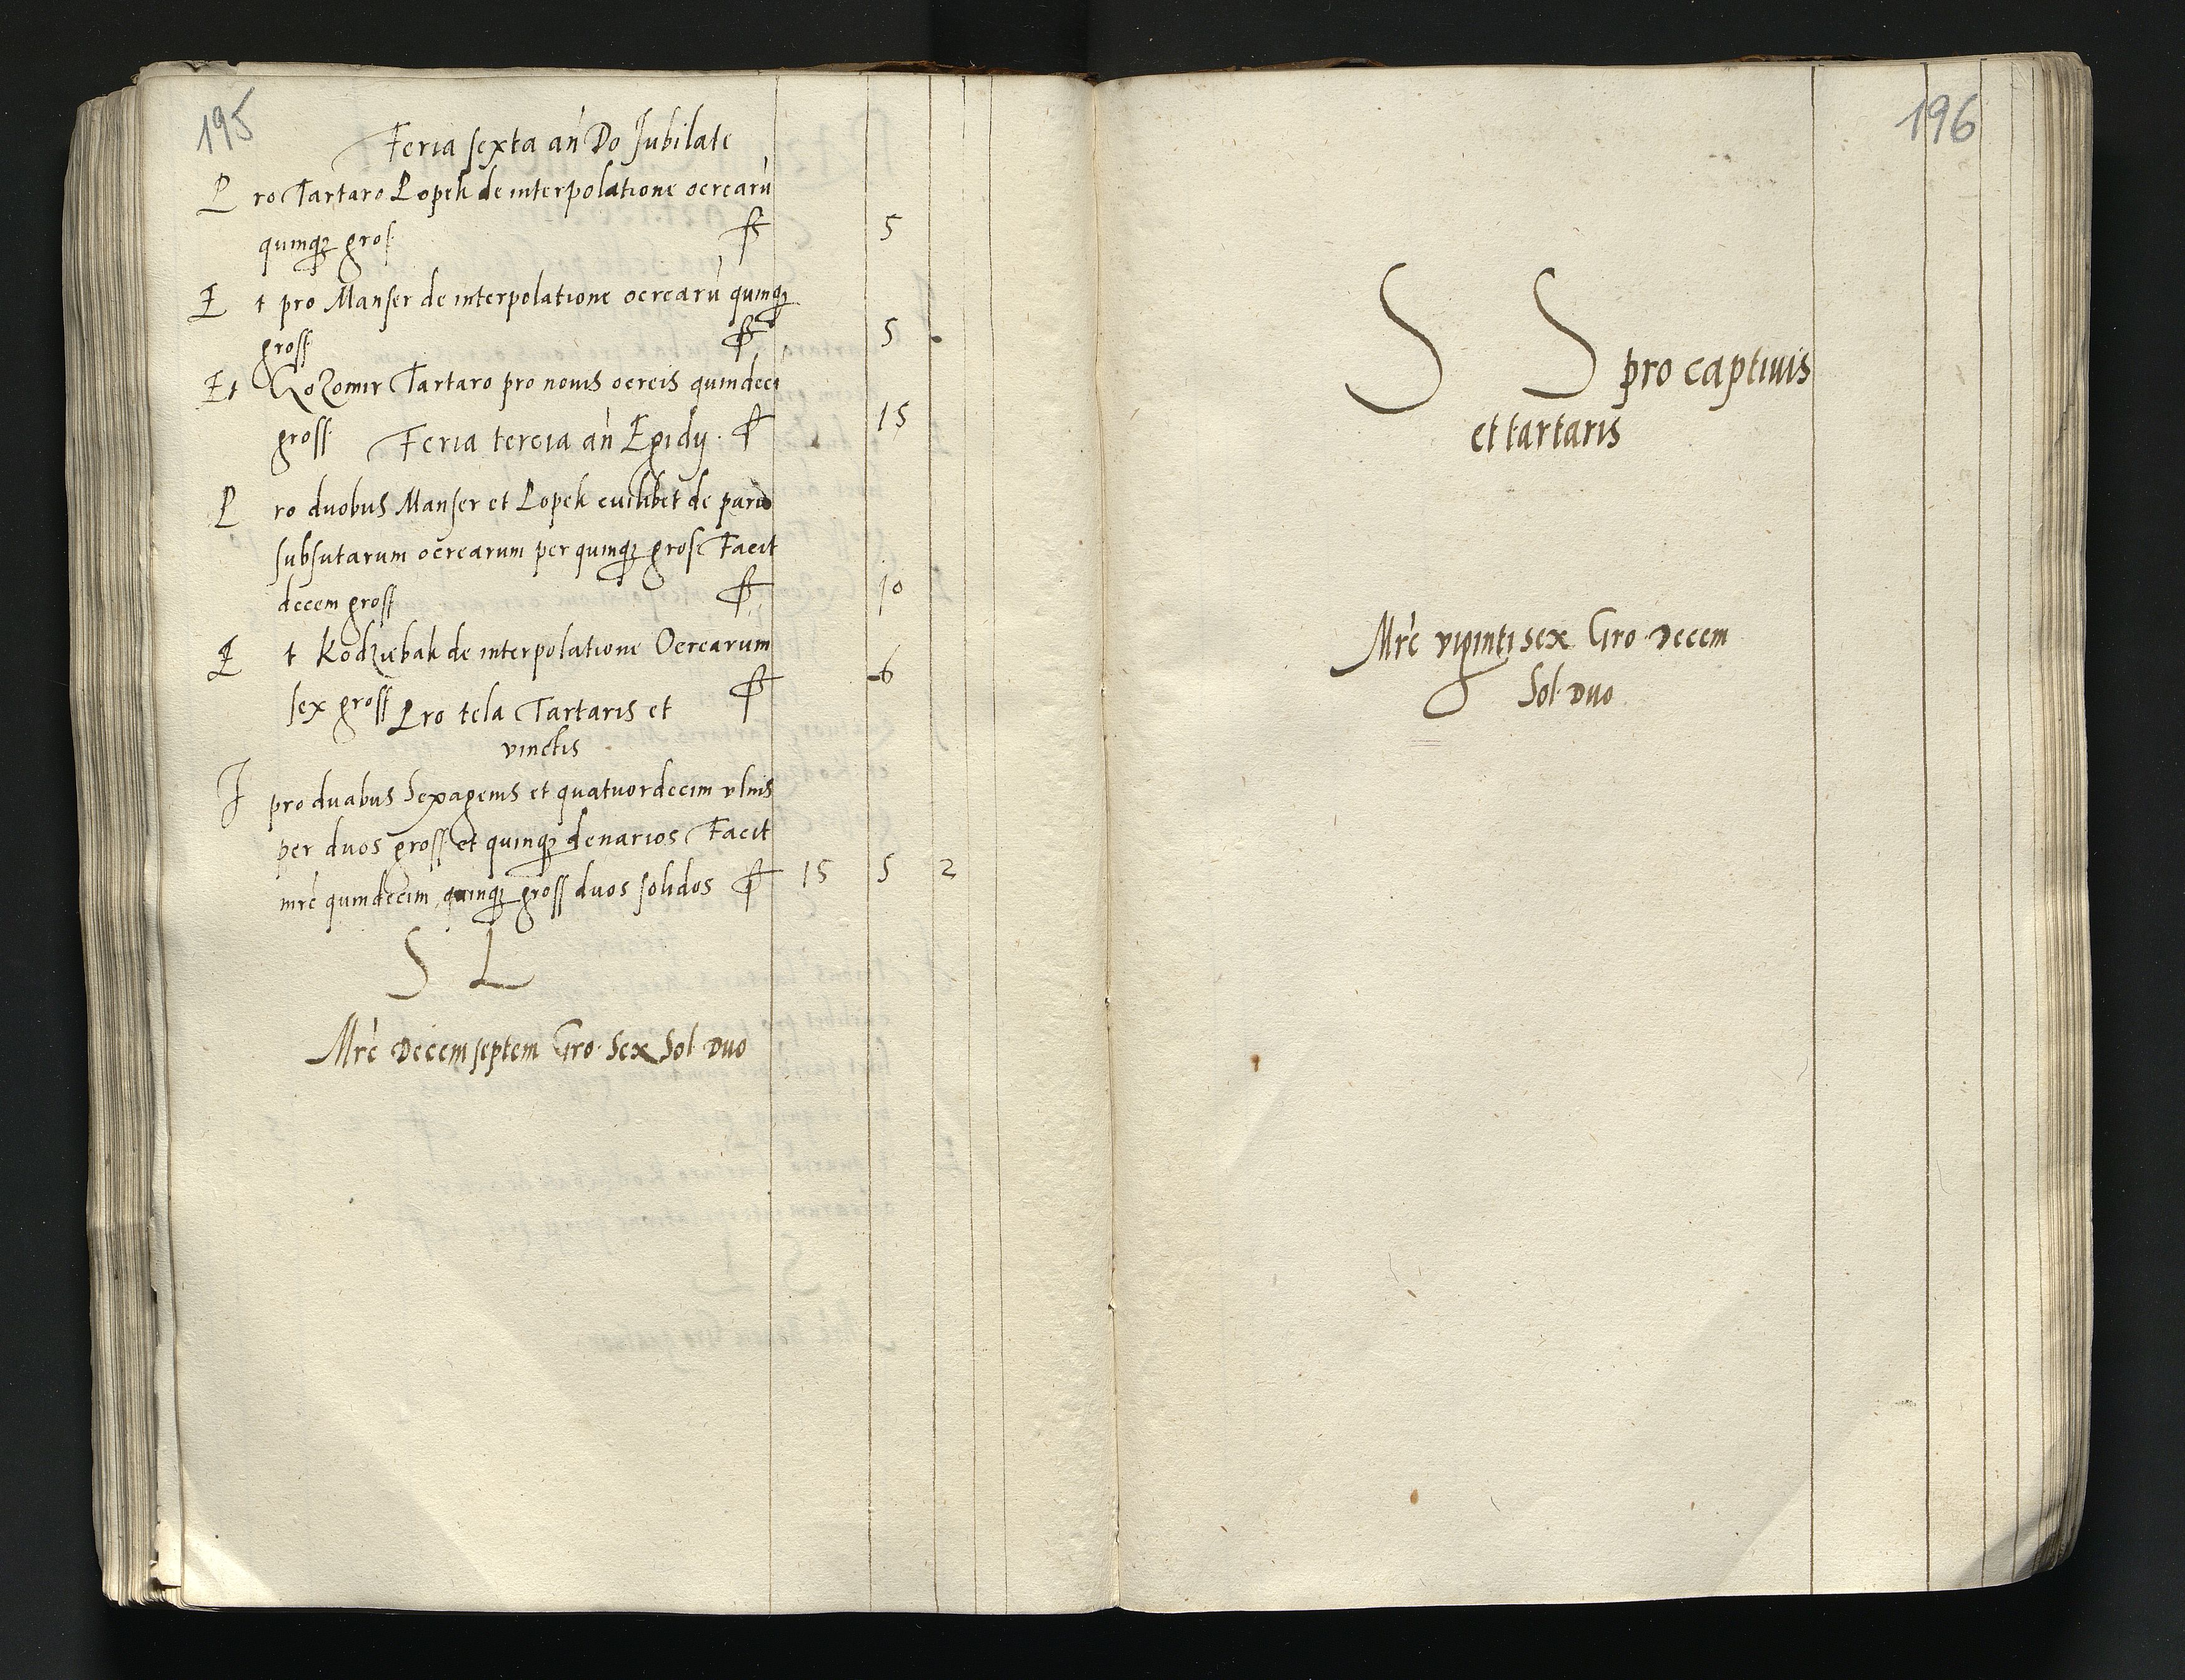 195
Feria sexta an Do Jubilate
Pro Tartaro Lopek de interpolatione ocrearu
quinqz gros ff 5
Et pro Manser de interpolatione ocrearu quinqz
gross ff 5
Et Gozomir Tartaro pro nouis ocreis quindeci
gross ff 15
Feria tercia an Egidy
Pro duobus Manser et Lopek cuilibet de pario
subsutarum ocrearum per quinqz gros Facit
decem gross ff 10
Et Kodziebak de interpolatione Ocrearum
sex gross ff 6
Pro tela Tartaris et
vinctis
I pro duabus Sexagenis et quatuordecim vlnis
per duos gross et quinqz denarios Facit
mrc quindecim quinqz gross duos solidos ff 15 5 2
S L
Mrc Decem septem Gro Sex Sol Duo
196
S S pro captiuis
et tartaris
Mrc viginti sex Gro Decem
Sol Duo